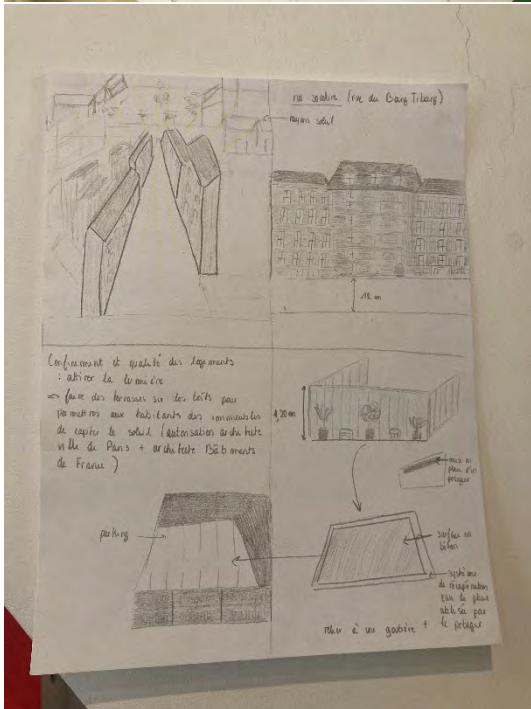 rue sombre (rue du Bourg Tibourg)
rayons soleil
12 m
Confinement et qualité des logements
: attirer la lumière
=> faire des terrasses sur les toits pour
permettre aux habitants des immeubles
de capter le soleil (autorisation architecte
ville de Paris + architecte Bâtiments
de France)
1,20 m
mise en
place d'un
potager
parking
surface en
béton
système
de récupération
eau de pluie
utilisée pour
le potager
relier à une gouttière +